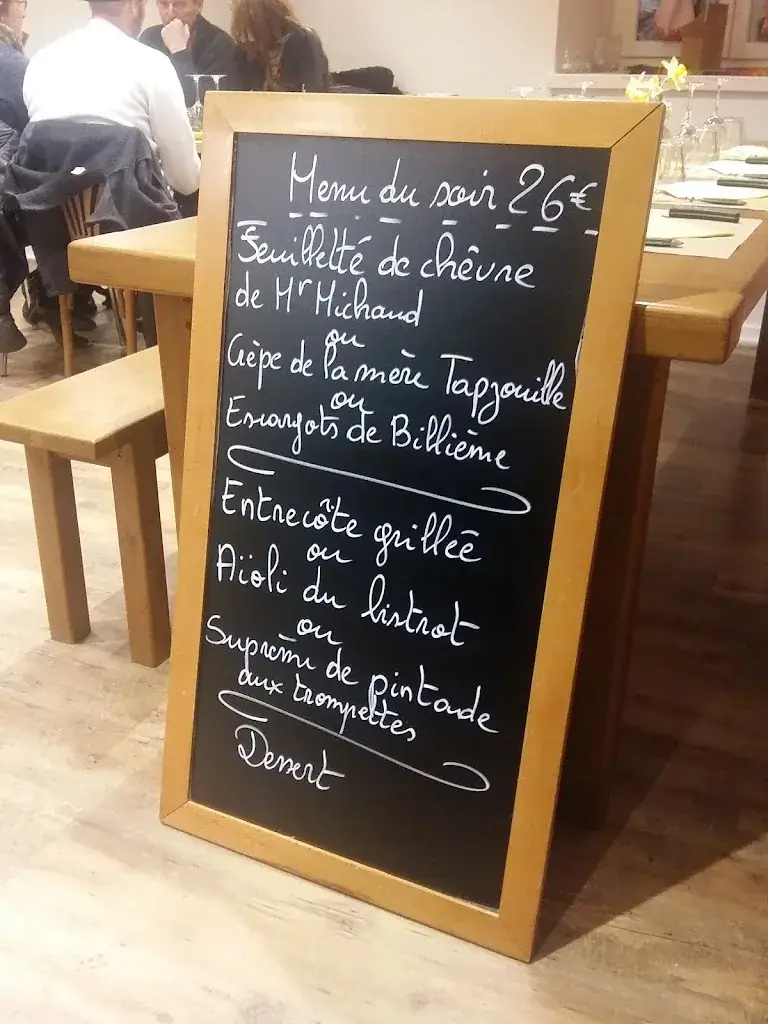 Menu du soir 26€
Feuilleté de chêvre
de Mr Michaud
ou
Crèpe de la mère Tapzouille
ou
Escargots de Billième
Entrecôte grillée
ou
Aïoli du bistrot
ou
Suprème de pintade
aux trompettes
Dessert